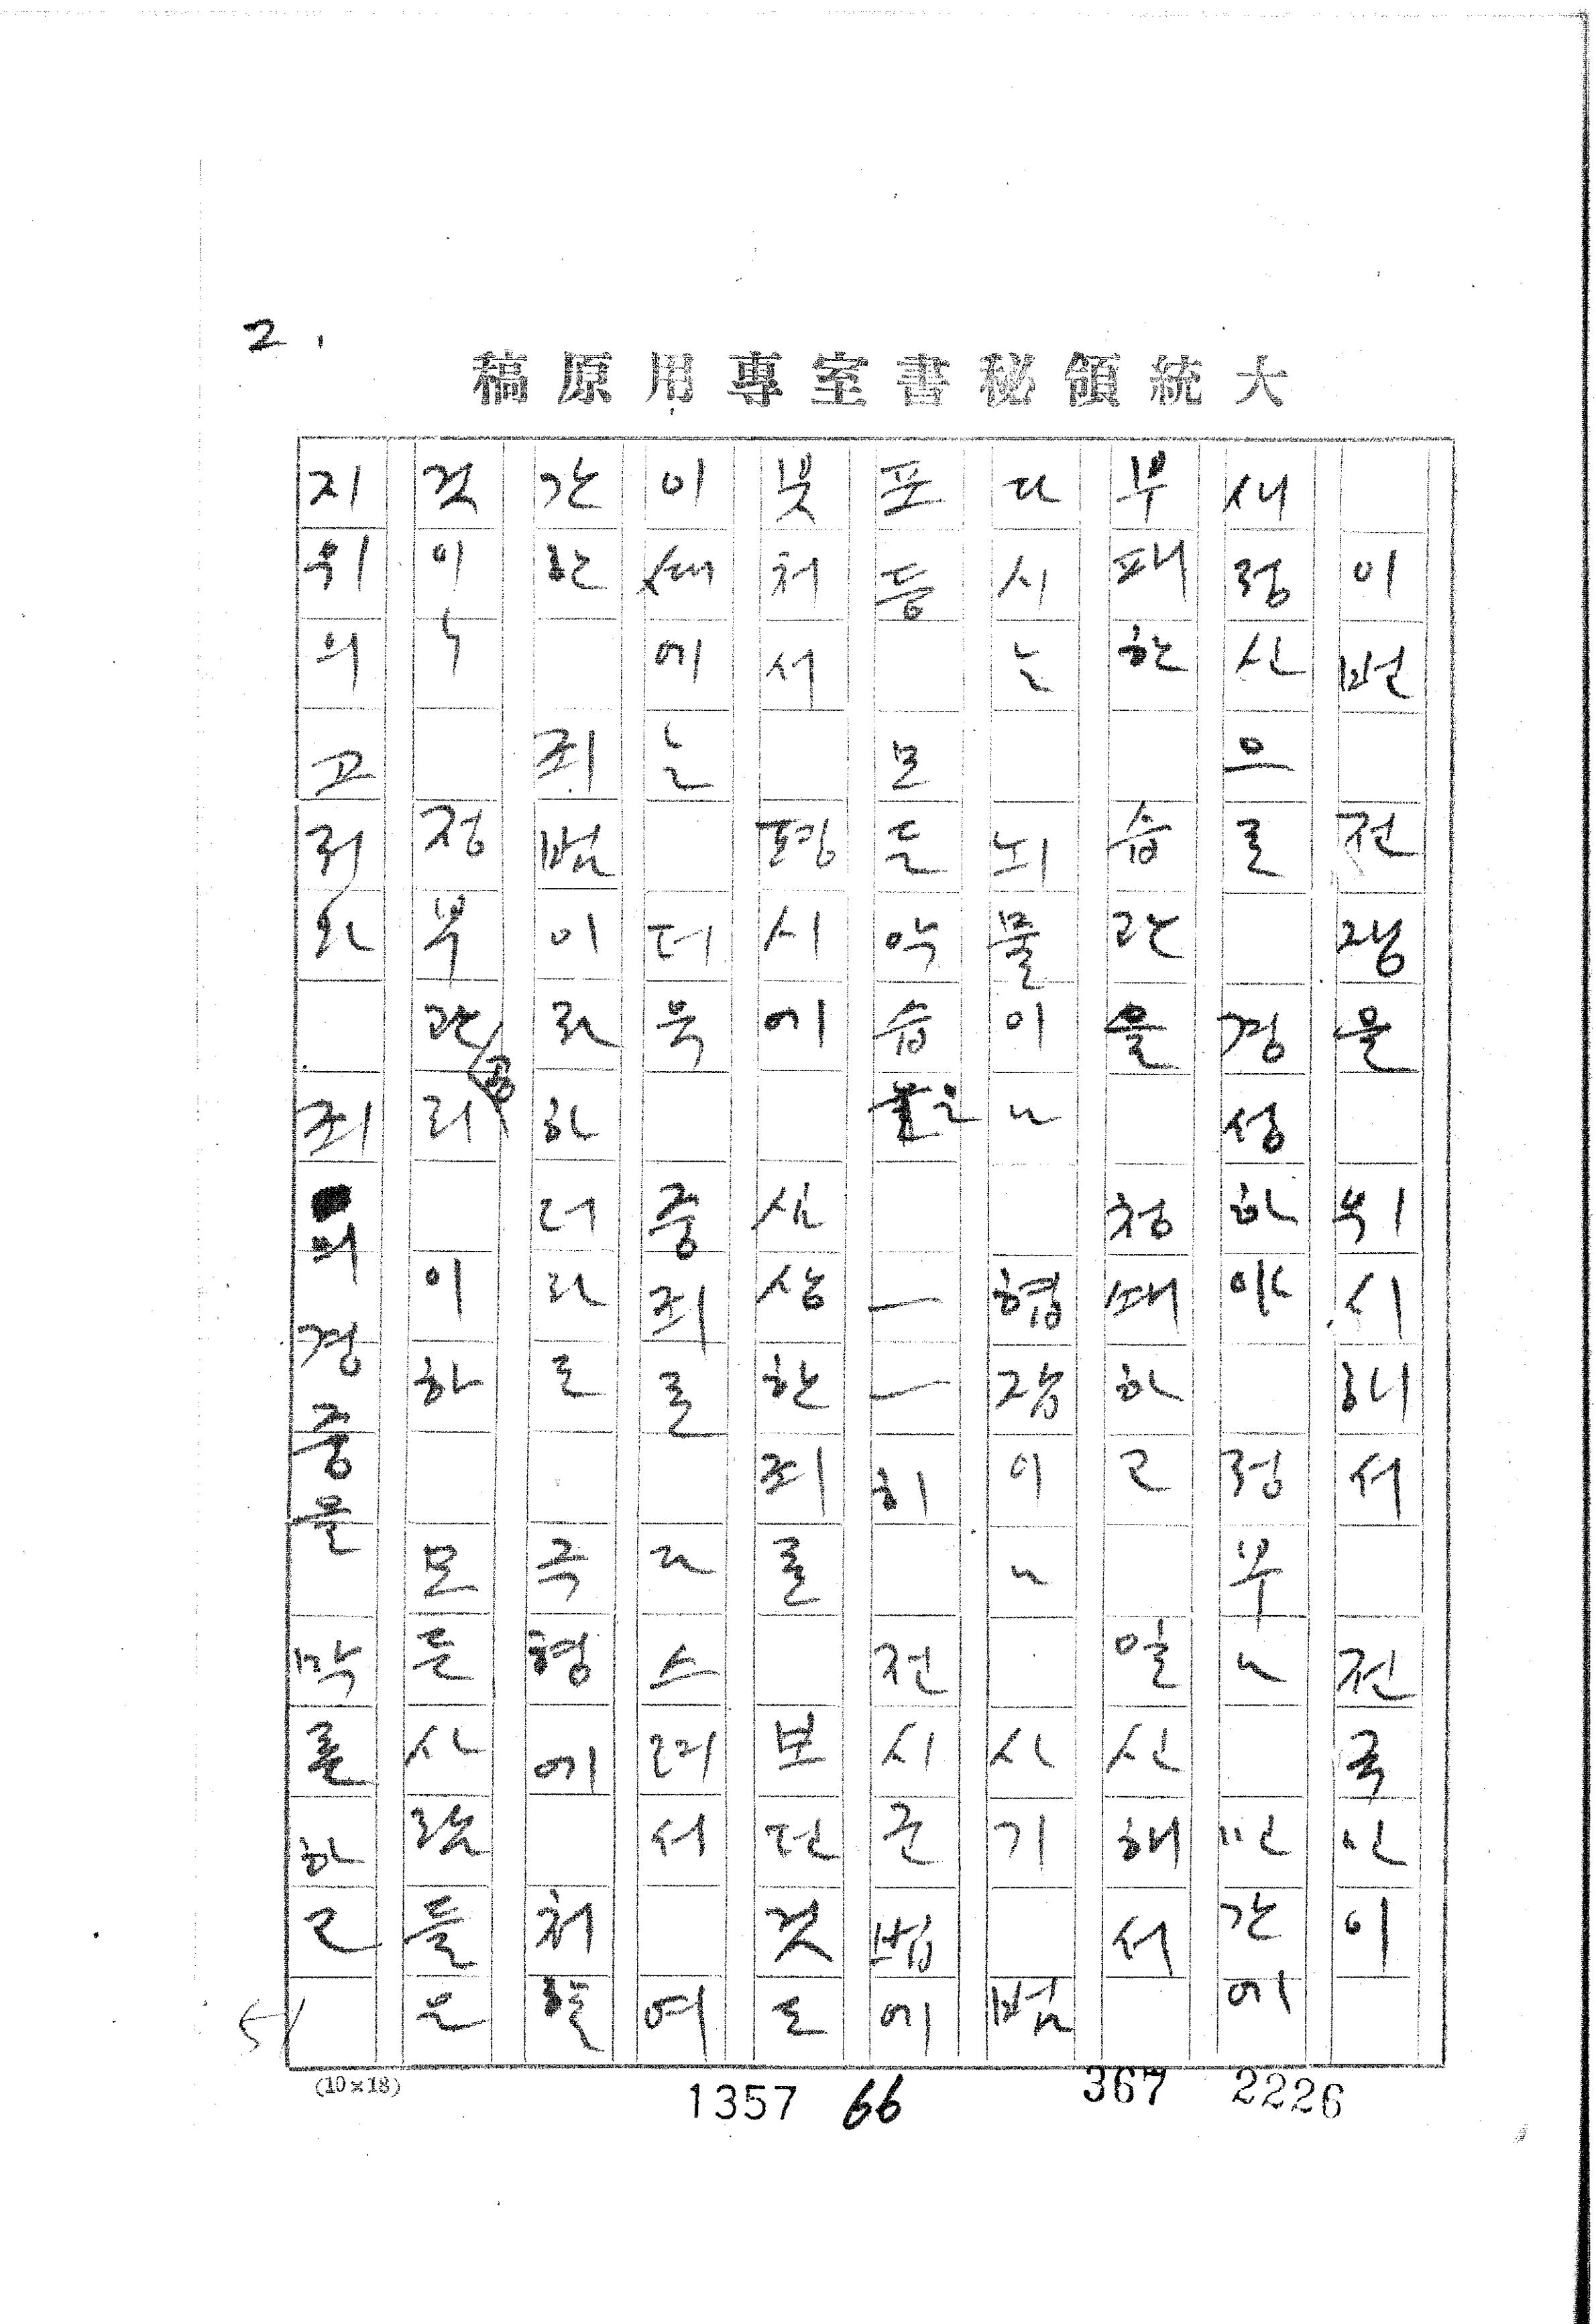 2.
大統領秘書室專用原稿
이번 전쟁은 위시해서 전국민이
새정신으로 경성하야 정부나 민간에
부패한 습관을 청쇄하고 일신해서
다시는 뇌물이나 협잡이나 사기 범
포등 모든 악습은 ㅡㅡ히 전시군법에
붓처서 평시에 심상한 죄를 보던것도
이때에는 더욱 중죄를 다스려서 여
간한 죄범이라하더라도 극형에 처할
것이누 정부관공리 이하 모든사람들은
지위의 고하와 죄의 경중을 막론하고
(10×18)
1357
66
367
2226